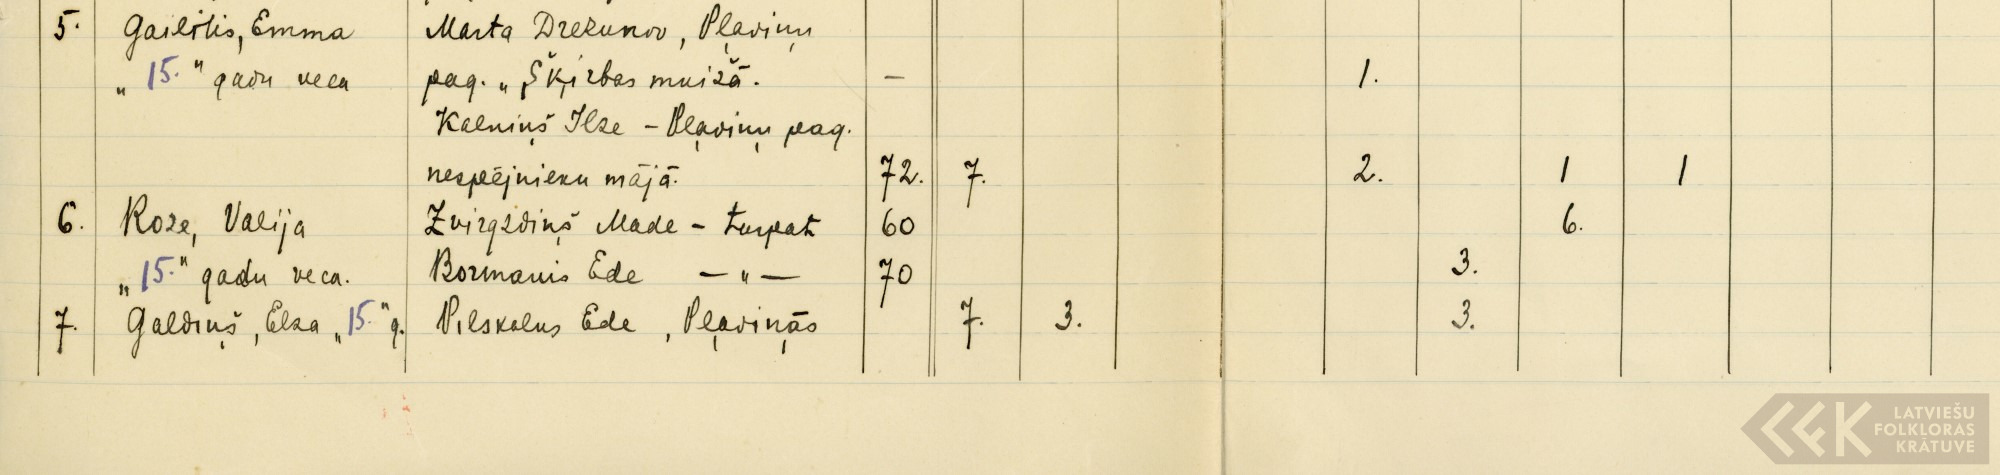 5. Gailitis, Emma Marta Drekunov, Pļaviņu
„15." gadu veca pag. „Šķirbas muižā. – 1.
Kalniņš Ilze – Pļaviņu pag.
nespējnieku mājā. 72. 7. 2. 1 1
6. Roze, Valija Zvirgzdiņš Made – turpat 60 6.
„15." gadu veca. Bormanis Ede —„— 70 3.
7. Galdiņš, Elza „15." g. Pilskalns Ede, Pļaviņās 7. 3. 3.
LATVIEŠU
FOLKLORAS
KRĀTUVE